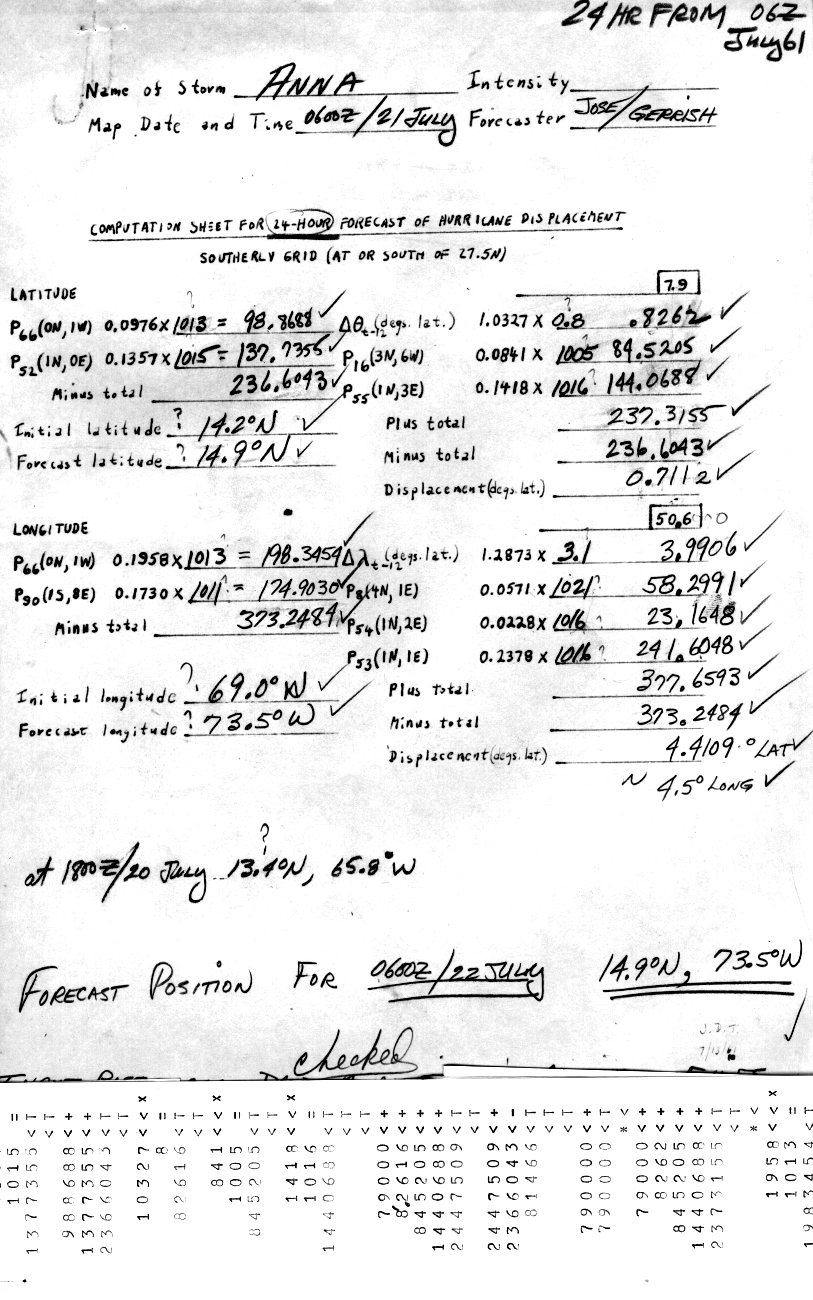 24 HR FROM 06Z
July 61
Name of Storm ANNA Intensity
Map Date and Time 0600Z/21 JULY Forecaster JOSE/GERRISH
COMPUTATION SHEET FOR 24-HOUR FORECAST OF HURRICANE DISPLACEMENT
SOUTHERLY GRID (AT OR SOUTH OF 27.5N)
LATITUDE 7.9
P66(0N,1W) 0.0976 x 1013 = 98.8688 Δθt-12 (degs. lat.) 1.0327 x 0.8 .8262
P52(1N,0E) 0.1357 x 1015 = 137.7355 P16(3N,6W) 0.0841 x 1005 84.5205
Minus total 236.6043 P55(1N,3E) 0.1418 x 1016? 144.0688
Initial latitude ? 14.2°N Plus total 237.3155
Forecast latitude ? 14.9°N Minus total 236.6043
Displacement (degs. lat.) 0.7112
LONGITUDE 50.6
P66(0N,1W) 0.1958 x 1013 = 198.3454 Δλt-12 (degs. lat.) 1.2873 x 3.1 3.9906
P90(1S,8E) 0.1730 x 1011 = 174.9030 P8(4N,1E) 0.0571 x 1021? 58.2991
Minus total 373.2484 P54(1N,2E) 0.0228 x 1016? 23.1648
P53(1N,1E) 0.2378 x 1016? 241.6048
Initial longitude ? 69.0°W Plus total 377.6593
Forecast longitude ? 73.5°W Minus total 373.2484
Displacement (degs. lat.) 4.4109 ° LAT
~ 4.5° LONG
?
at 1800Z/20 July 13.4°N, 65.8°W
FORECAST POSITION FOR 0600Z/22 JULY 14.9°N, 73.5°W
J.D.J.
checked
1015 =
1377355 < T
< T
988688 < +
1377355 < +
2366043 < T
< T
10327 < < x
8 =
82616 < T
< T
841 < < x
1005 =
845205 < T
< T
1418 < < x
1016 =
1440688 < T
< T
79000 < +
82616 < +
845205 < +
1440688 < +
2447509 < T
< T
2447509 < +
2366043 < -
81466 < T
< T
< T
790000 < +
790000 < T
* <
79000 < +
8262 < +
845205 < +
1440688 < +
2373155 < T
< T
* <
1958 < < x
1013 =
1983454 < T